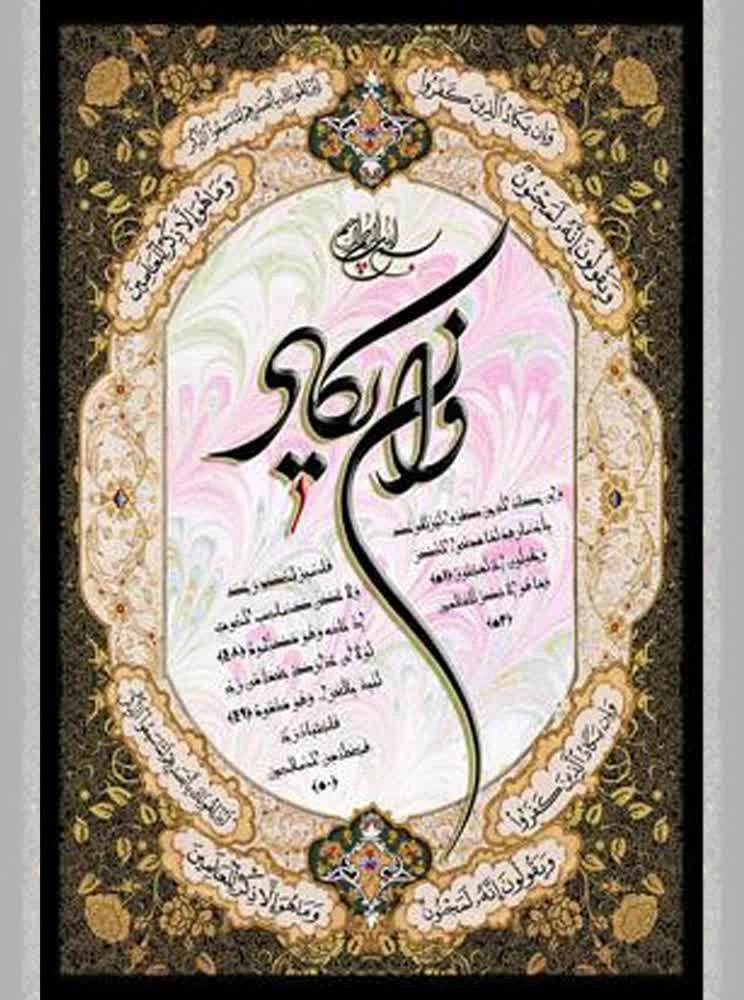 وَإِن يَكَادُ الَّذِينَ كَفَرُوا
لَيُزْلِقُونَكَ بِأَبْصَارِهِمْ لَمَّا سَمِعُوا الذِّكْرَ
وَيَقُولُونَ إِنَّهُ لَمَجْنُونٌ
وَمَا هُوَ إِلَّا ذِكْرٌ لِّلْعَالَمِينَ
بسم الله الرحمن الرحيم
وان يكاد
وان يكاد الذين كفروا ليزلقونك
بأبصارهم لما سمعوا الذكر
ويقولون إنه لمجنون (٥١)
وما هو إلا ذكر للعالمين
(٥٢)
فاصبر لحكم ربك
ولا تكن كصاحب الحوت
إذ نادى وهو مكظوم (٤٨)
لولا أن تداركه نعمة من ربه
لنبذ بالعراء وهو مذموم (٤٩)
فاجتباه ربه
فجعله من الصالحين
(٥٠)
لَيُزْلِقُونَكَ بِأَبْصَارِهِمْ لَمَّا سَمِعُوا الذِّكْرَ
وَإِن يَكَادُ الَّذِينَ كَفَرُوا
وَمَا هُوَ إِلَّا ذِكْرٌ لِّلْعَالَمِينَ
وَيَقُولُونَ إِنَّهُ لَمَجْنُونٌ